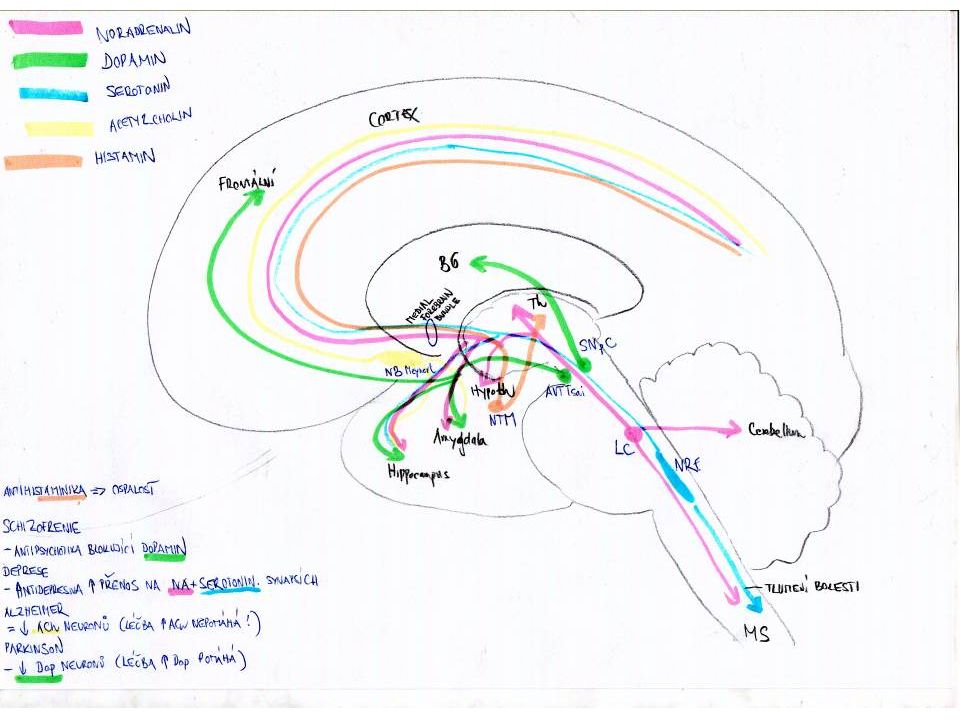 NORADRENALIN
DOPAMIN
SEROTONIN
ACETYLCHOLIN
HISTAMIN
CORTEX
FRONTÁLNÍ
BG
MEDIAL
FOREBRAIN
BUNDLE
Th
SNpC
NB Meynert
Hypoth
AVT Tsai
NTM
Amygdala
Hippocampus
LC
Cerebellum
NRE
TLUMENÍ BOLESTI
MS
ANTIHISTAMINIKA => OSPALOST
SCHIZOFRENIE
- ANTIPSYCHOTIKA BLOKUJÍCÍ DOPAMIN
DEPRESE
- ANTIDEPRESIVA ↑ PŘENOS NA NA + SEROTONIN. SYNAPSÍCH
ALZHEIMER
= ↓ ACH NEURONŮ (LÉČBA ↑ ACH NEPOMÁHÁ!)
PARKINSON
- ↓ DOP NEURONŮ (LÉČBA ↑ DOP POMÁHÁ)